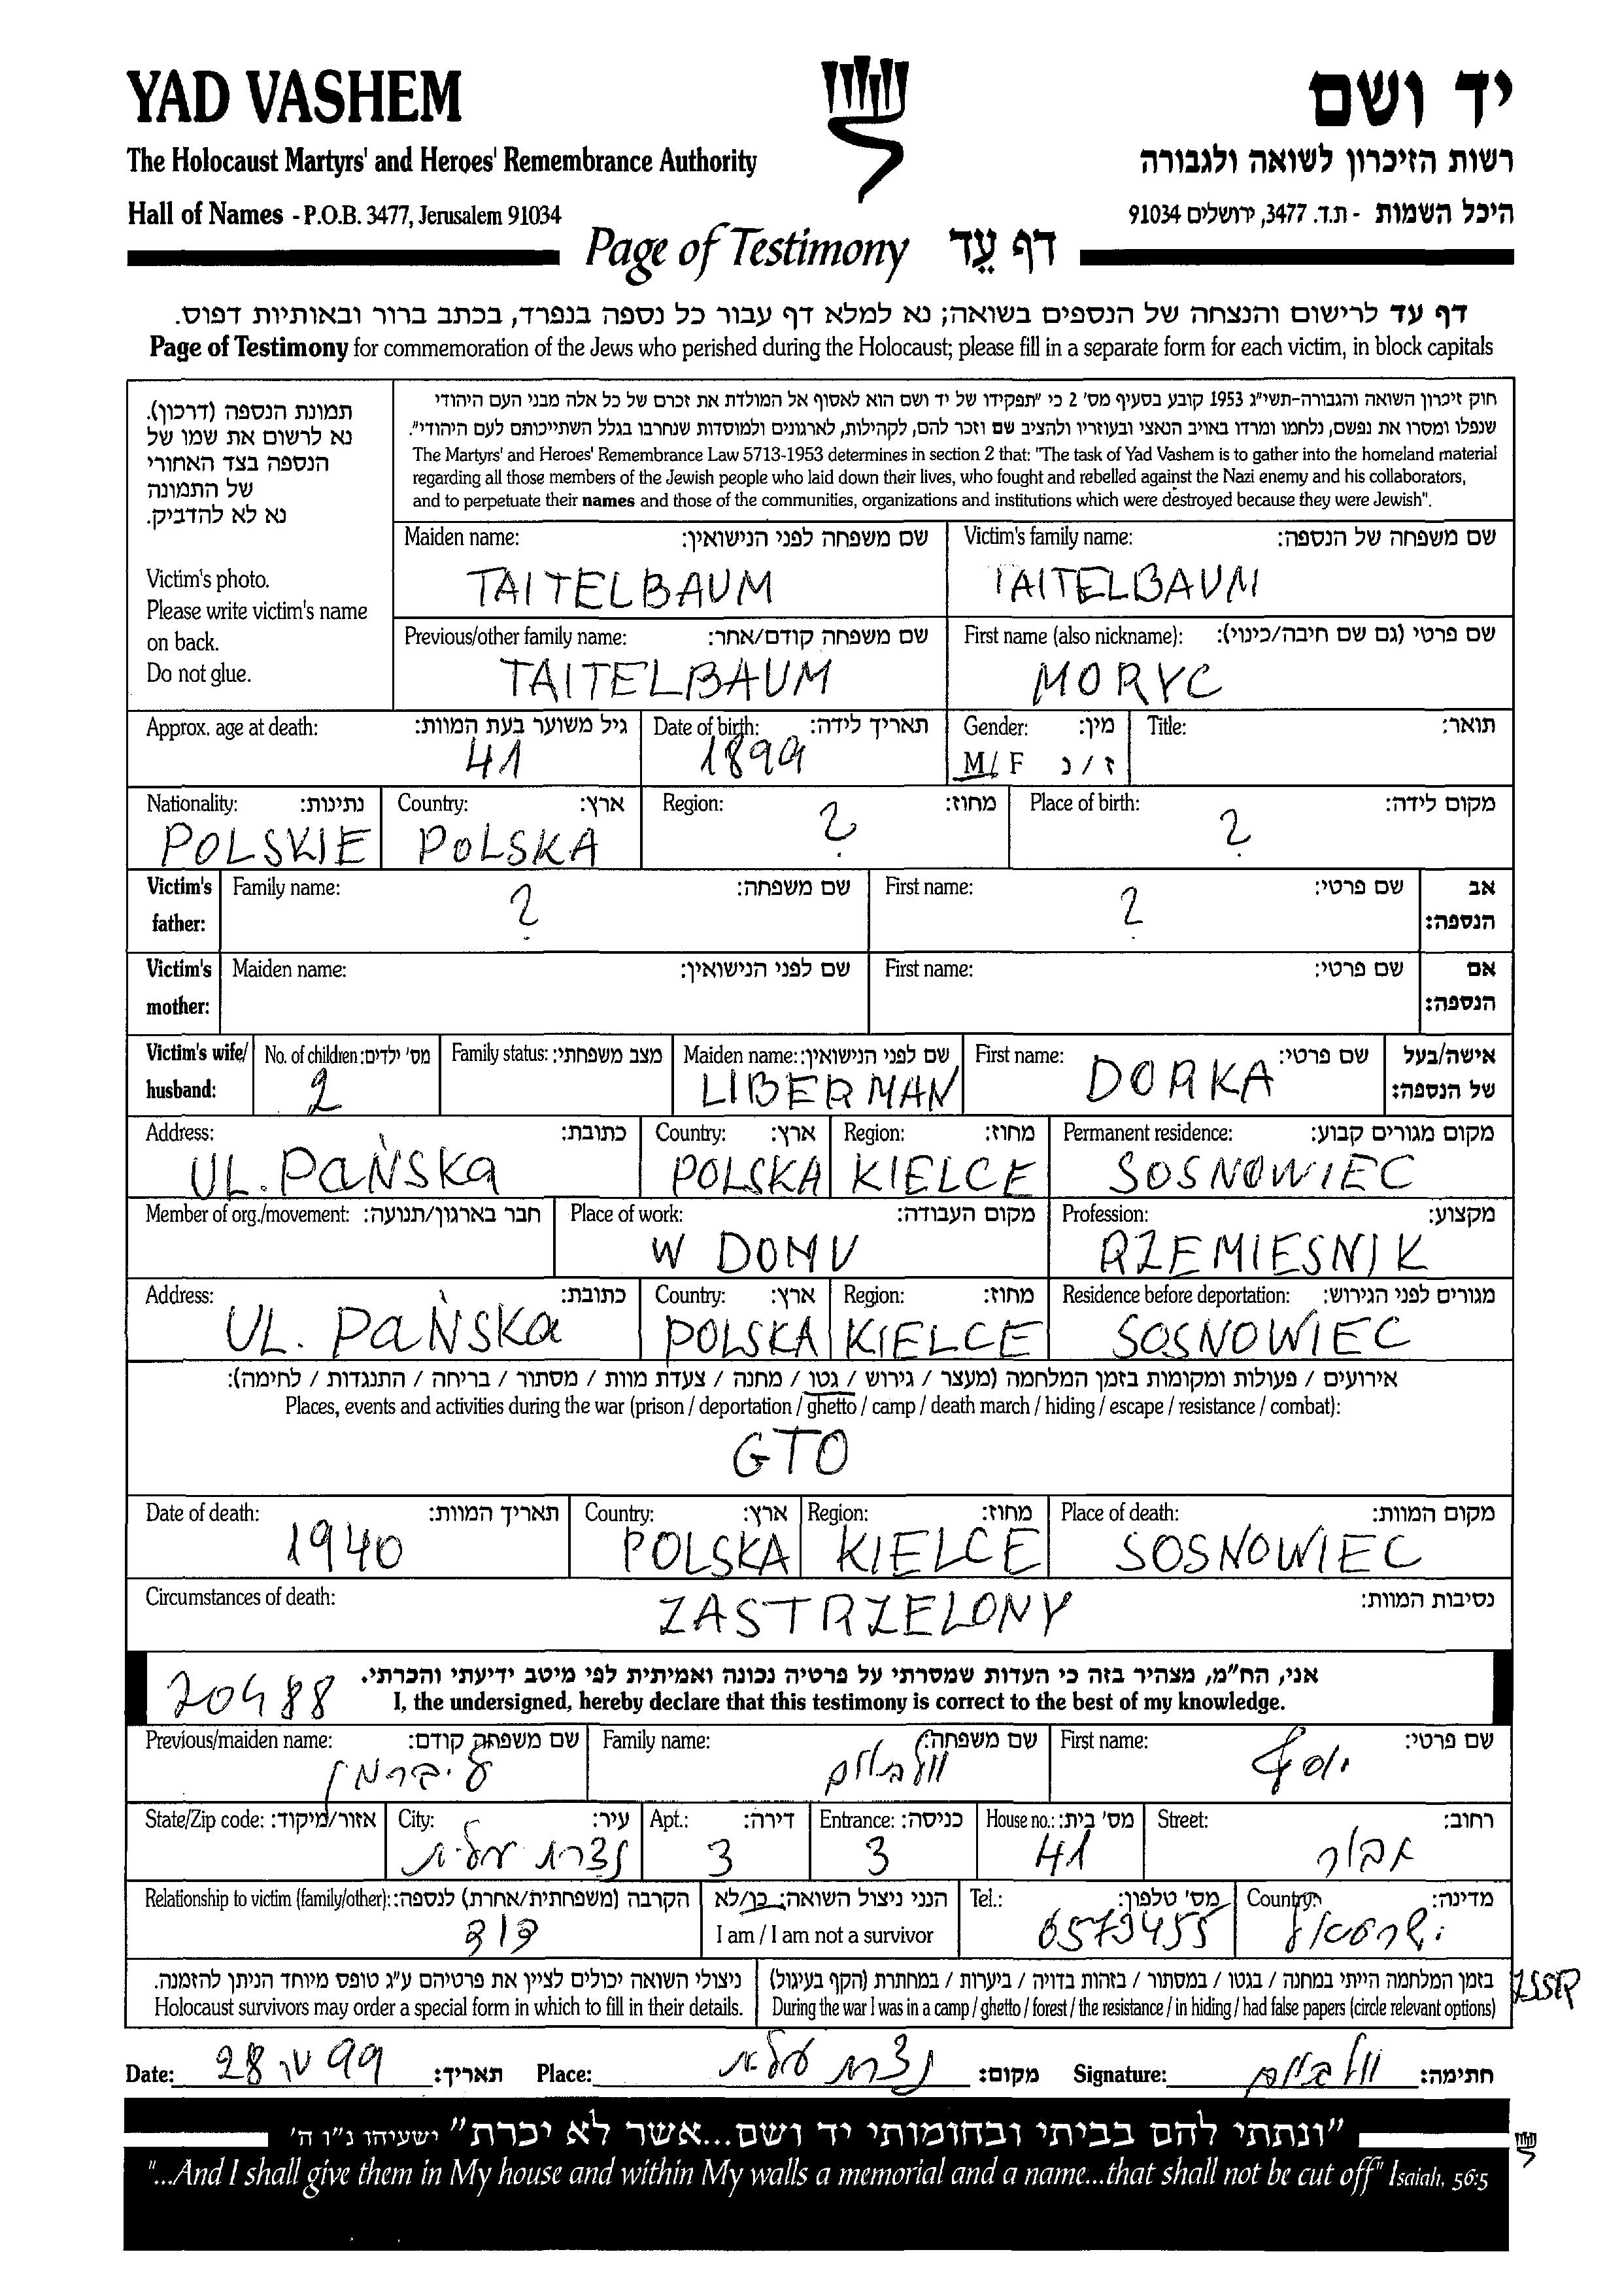 YAD VASHEM
יד ושם
The Holocaust Martyrs' and Heroes' Remembrance Authority
רשות הזיכרון לשואה ולגבורה
Hall of Names - P.O.B. 3477, Jerusalem 91034
היכל השמות - ת.ד. 3477, ירושלים 91034
Page of Testimony דף עֵד
דף עד לרישום והנצחה של הנספים בשואה; נא למלא דף עבור כל נספה בנפרד, בכתב ברור ובאותיות דפוס.
Page of Testimony for commemoration of the Jews who perished during the Holocaust; please fill in a separate form for each victim, in block capitals
תמונת הנספה (דרכון).
נא לרשום את שמו של
הנספה בצד האחורי
של התמונה
נא לא להדביק.
Victim's photo.
Please write victim's name
on back.
Do not glue.
חוק זיכרון השואה והגבורה-תשי"ג 1953 קובע בסעיף מס' 2 כי "תפקידו של יד ושם הוא לאסוף אל המולדת את זכרם של כל אלה מבני העם היהודי
שנפלו ומסרו את נפשם, נלחמו ומרדו באויב הנאצי ובעוזריו ולהציב שם וזכר להם, לקהילות, לארגונים ולמוסדות שנחרבו בגלל השתייכותם לעם היהודי".
The Martyrs' and Heroes' Remembrance Law 5713-1953 determines in section 2 that: "The task of Yad Vashem is to gather into the homeland material
regarding all those members of the Jewish people who laid down their lives, who fought and rebelled against the Nazi enemy and his collaborators,
and to perpetuate their names and those of the communities, organizations and institutions which were destroyed because they were Jewish".
Maiden name: שם משפחה לפני הנישואין:
TAITELBAUM
Victim's family name: שם משפחה של הנספה:
TAITELBAUM
Previous/other family name: שם משפחה קודם/אחר:
TAITELBAUM
First name (also nickname): שם פרטי (גם שם חיבה/כינוי):
MORYC
Approx. age at death: גיל משוער בעת המוות:
41
Date of birth: תאריך לידה:
1899
Gender: מין:
M/F ז/נ
Title: תואר:
Nationality: נתינות:
POLSKIE
Country: ארץ:
POLSKA
Region: מחוז:
?
Place of birth: מקום לידה:
?
Victim's father: Family name: שם משפחה:
?
First name: שם פרטי: אב הנספה:
?
Victim's mother: Maiden name: שם לפני הנישואין:
First name: שם פרטי: אם הנספה:
Victim's wife/ husband: No. of children: מס' ילדים:
2
Family status: מצב משפחתי:
Maiden name: שם לפני הנישואין:
LIBERMAN
First name: שם פרטי: אישה/בעל של הנספה:
DORKA
Address: כתובת:
UL. PAŃSKA
Country: ארץ:
POLSKA
Region: מחוז:
KIELCE
Permanent residence: מקום מגורים קבוע:
SOSNOWIEC
Member of org./movement: חבר בארגון/תנועה:
Place of work: מקום העבודה:
W DOMU
Profession: מקצוע:
RZEMIESNIK
Address: כתובת:
UL. PAŃSKA
Country: ארץ:
POLSKA
Region: מחוז:
KIELCE
Residence before deportation: מגורים לפני הגירוש:
SOSNOWIEC
אירועים / פעולות ומקומות בזמן המלחמה (מעצר / גירוש / גטו / מחנה / צעדת מוות / מסתור / בריחה / התנגדות / לחימה):
Places, events and activities during the war (prison / deportation / ghetto / camp / death march / hiding / escape / resistance / combat):
GTO
Date of death: תאריך המוות:
1940
Country: ארץ:
POLSKA
Region: מחוז:
KIELCE
Place of death: מקום המוות:
SOSNOWIEC
Circumstances of death: נסיבות המוות:
ZASTRZELONY
אני, הח"מ, מצהיר בזה כי העדות שמסרתי על פרטיה נכונה ואמיתית לפי מיטב ידיעתי והכרתי.
I, the undersigned, hereby declare that this testimony is correct to the best of my knowledge.
Previous/maiden name: שם משפחה קודם:
ליברמן
Family name: שם משפחה:
First name: שם פרטי:
יוסף
State/Zip code: אזור/מיקוד:
City: עיר:
נצרת עלית
Apt.: דירה:
3
Entrance: כניסה:
3
House no.: מס' בית:
41
Street: רחוב:
Relationship to victim (family/other): הקרבה (משפחתית/אחרת) לנספה:
דוד
הנני ניצול השואה: כן/לא
I am / I am not a survivor
Tel.: מס' טלפון:
6573455
Country: מדינה:
ישראל
ניצולי השואה יכולים לציין את פרטיהם ע"ג טופס מיוחד הניתן להזמנה.
Holocaust survivors may order a special form in which to fill in their details.
בזמן המלחמה הייתי במחנה / בגטו / במסתור / בזהות בדויה / ביערות / במחתרת (הקף בעיגול)
During the war I was in a camp / ghetto / forest / the resistance / in hiding / had false papers (circle relevant options)
ZSSR
Date: 28 IV 99 תאריך:
Place: נצרת עלית מקום:
Signature: חתימה:
"ונתתי להם בביתי ובחומותי יד ושם...אשר לא יכרת" ישעיהו נ"ו ה'
"...And I shall give them in My house and within My walls a memorial and a name...that shall not be cut off" Isaiah, 56:5